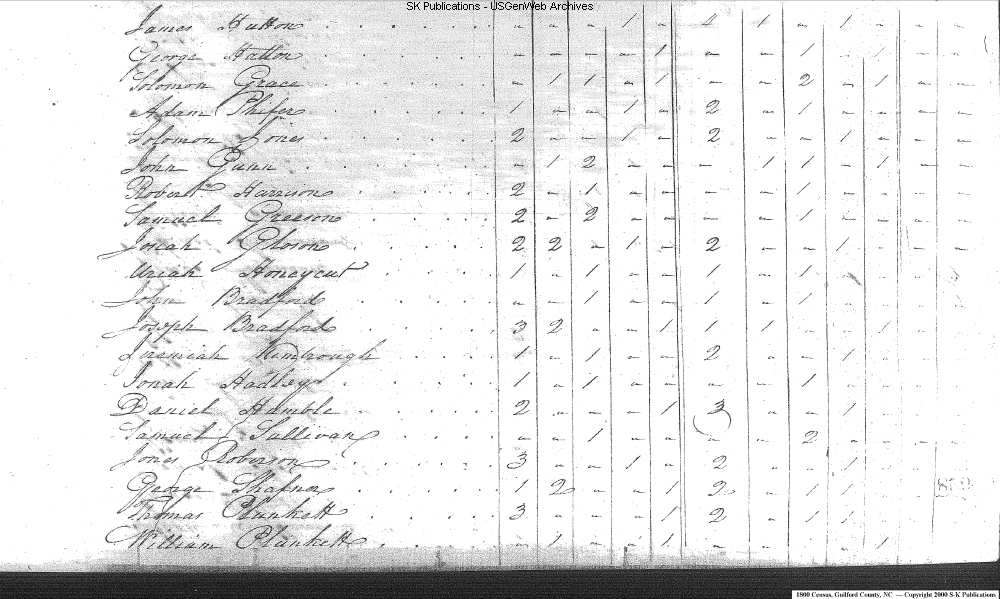 SK Publications - USGenWeb Archives
James Hutton - - - 1 - 4 1 - 1 -
George Hatton - - - - 1 - - 1 - -
Solomon Grace - 1 1 - 1 - - 2 - 1
Adam Phifer 1 - - 1 - 2 - 1 - -
Solomon Jones 2 - - 1 - 2 - - 1 -
John Gunn - 1 2 - - - 1 1 - 1
Robert Harrison 2 - 1 - - - - 1 -
Samuel Greeson 2 - 2 - - - - 1 -
Jonah 2 2 - 1 - 2 - - 1 -
Uriah Honeycut 1 - 1 - - 1 - 1 - -
John Bradford - - 1 - - 1 - 1 - -
Joseph Bradford 3 2 - - 1 1 1 - - 1
Jeremiah Kimbrough 1 - 1 - - 2 - - 1 -
Jonah Hadley 1 - 1 - - - - 1
Daniel Humble 2 - - - 1 3 - - 1 -
Samuel Sullivan - - 1 - - - - 2 - -
Jones Roberson 3 - - 1 - 2 - - 1 -
George Shafner 1 2 - - 1 2 - 1 1
Thomas Plunkett 3 - - - 1 2 - 1 1
William Plunkett - 1 - 1 - - - - 1
1800 Census, Guilford County, NC — Copyright 2000 S-K Publications